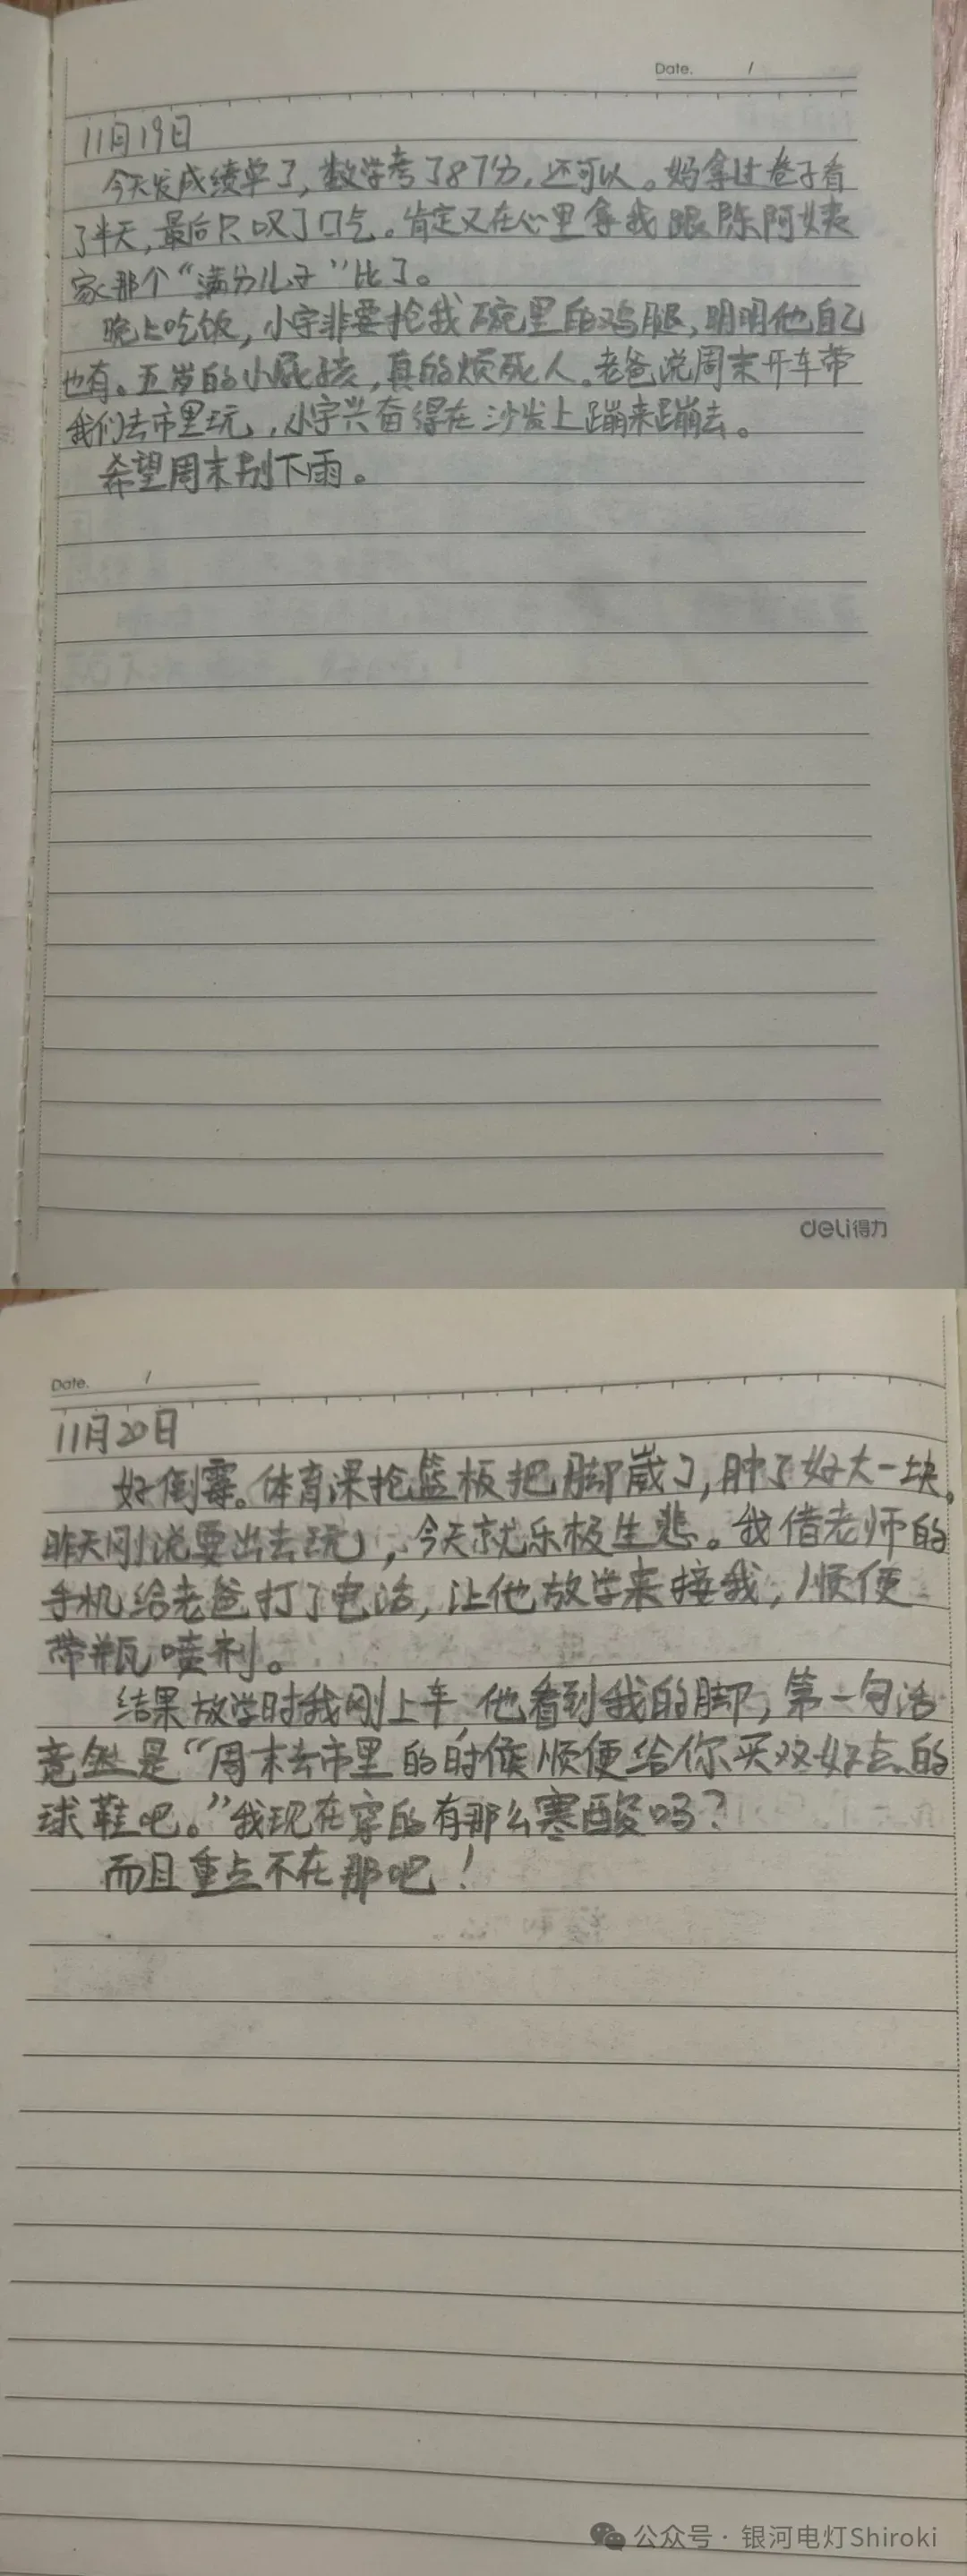 Date. /
11月19日
今天发成绩单了，数学考了87分，还可以。妈拿过卷子看
了半天，最后只叹了口气。肯定又在心里拿我跟陈阿姨
家那个“满分儿子”比了。
晚上吃饭，小宇非要抢我碗里的鸡腿，明明他自己
也有。五岁的小屁孩，真的烦死人。老爸说周末开车带
我们去市里玩，小宇兴奋得在沙发上蹦来蹦去。
希望周末别下雨。
deli得力
Date. /
11月20日
好倒霉。体育课抢篮板把脚崴了，肿了好大一块，
昨天刚说要出去玩，今天就乐极生悲。我借老师的
手机给老爸打了电话，让他放学来接我，顺便
带瓶喷剂。
结果放学时我刚上车，他看到我的脚，第一句话
竟然是“周末去市里的时候顺便给你买双好点的
球鞋吧。”我现在穿的有那么寒酸吗？
而且重点不在那吧！
公众号·银河电灯Shiroki